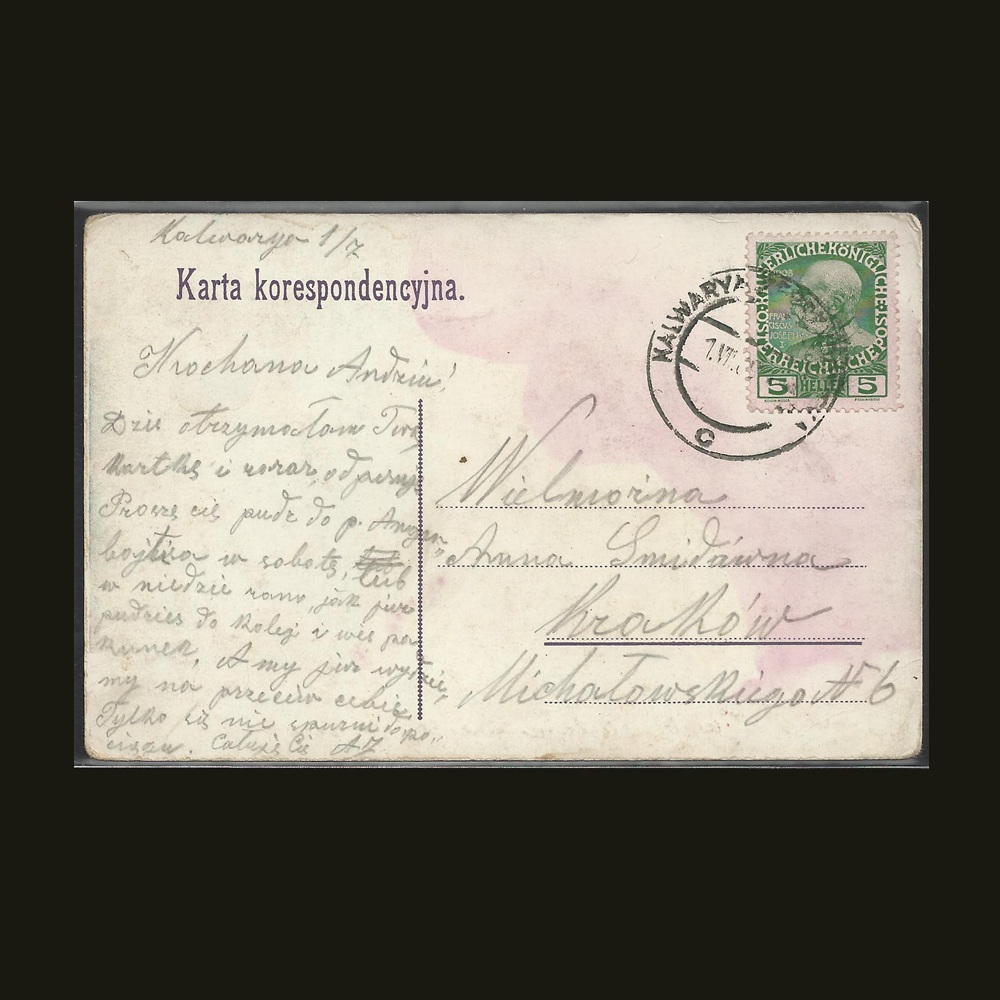 Kalwarya 1/7
Karta korespondencyjna.
Kochana Andziu!
Dziś otrzymałam Twą
kartkę i zaraz odpisuję
Proszę cię pudź do p.
w sobotę, lub
w niedzie rano, jak już
pudzies do kolei i weś pa
kunek, A my już wyńdzie„
my na przeciw ciebie
Tylko się nie spuźni do po„
ciągu. Całuję Cię AZ
KALWARYA
1.VII.
C
KAISERLICHE KÖNIGLICHE
ÖSTERREICHISCHE
1908
FRAN
CISCVS
JOSEPH I
5 HELLER 5
Wielmożna
Anna Smidówna
Kraków
Michałowskiego N 6